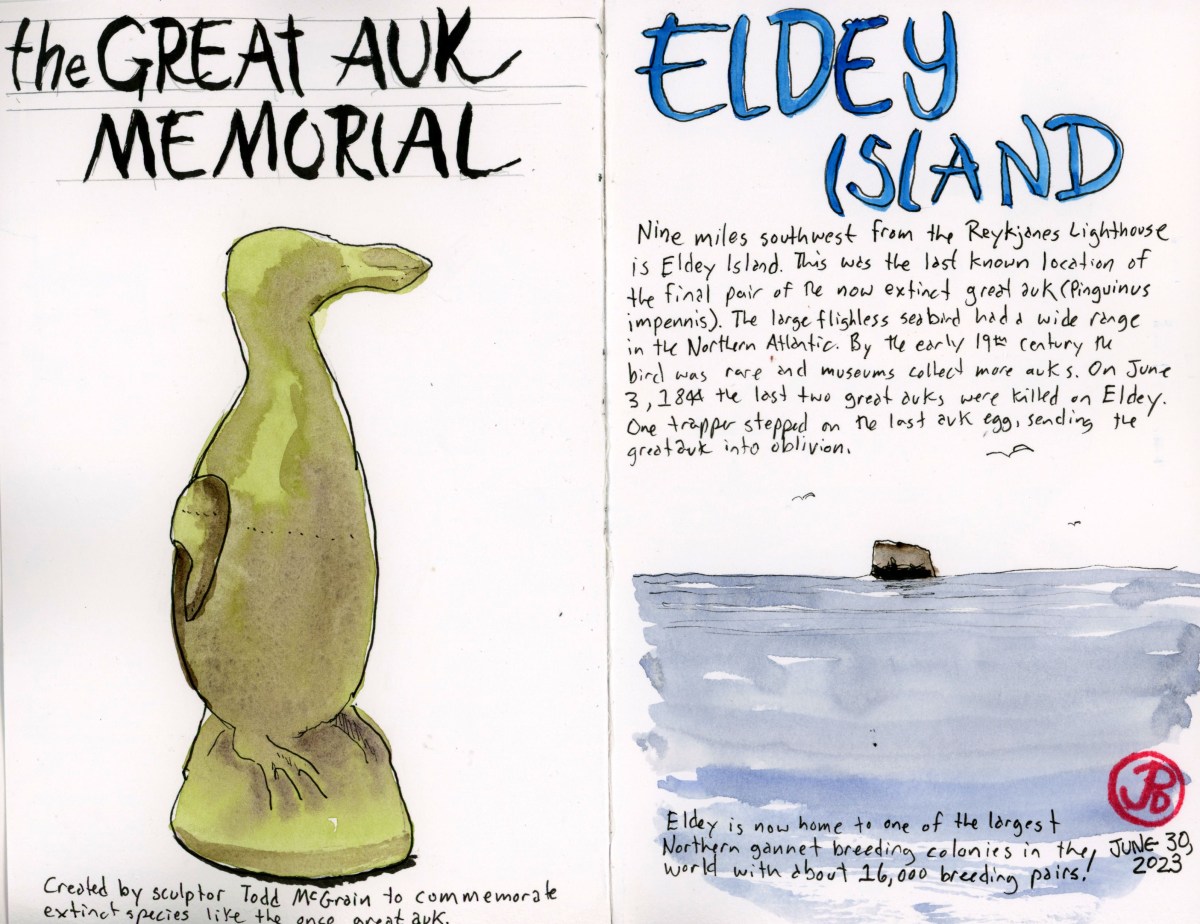 the GREAT AUK
MEMORIAL
Created by sculptor Todd McGrain to commemorate
extinct species like the once great auk.
ELDEY
ISLAND
Nine miles southwest from the Reykjanes Lighthouse
is Eldey Island. This was the last known location of
the final pair of the now extinct great auk (Pinguinus
impennis). The large flighless seabird had a wide range
in the Northern Atlantic. By the early 19th century the
bird was rare and museums collect more auks. On June
3, 1844 the last two great auks were killed on Eldey.
One trapper stepped on the last auk egg, sending the
great auk into oblivion.
Eldey is now home to one of the largest
Northern gannet breeding colonies in the
world with about 16,000 breeding pairs!
JPD
JUNE 30,
2023